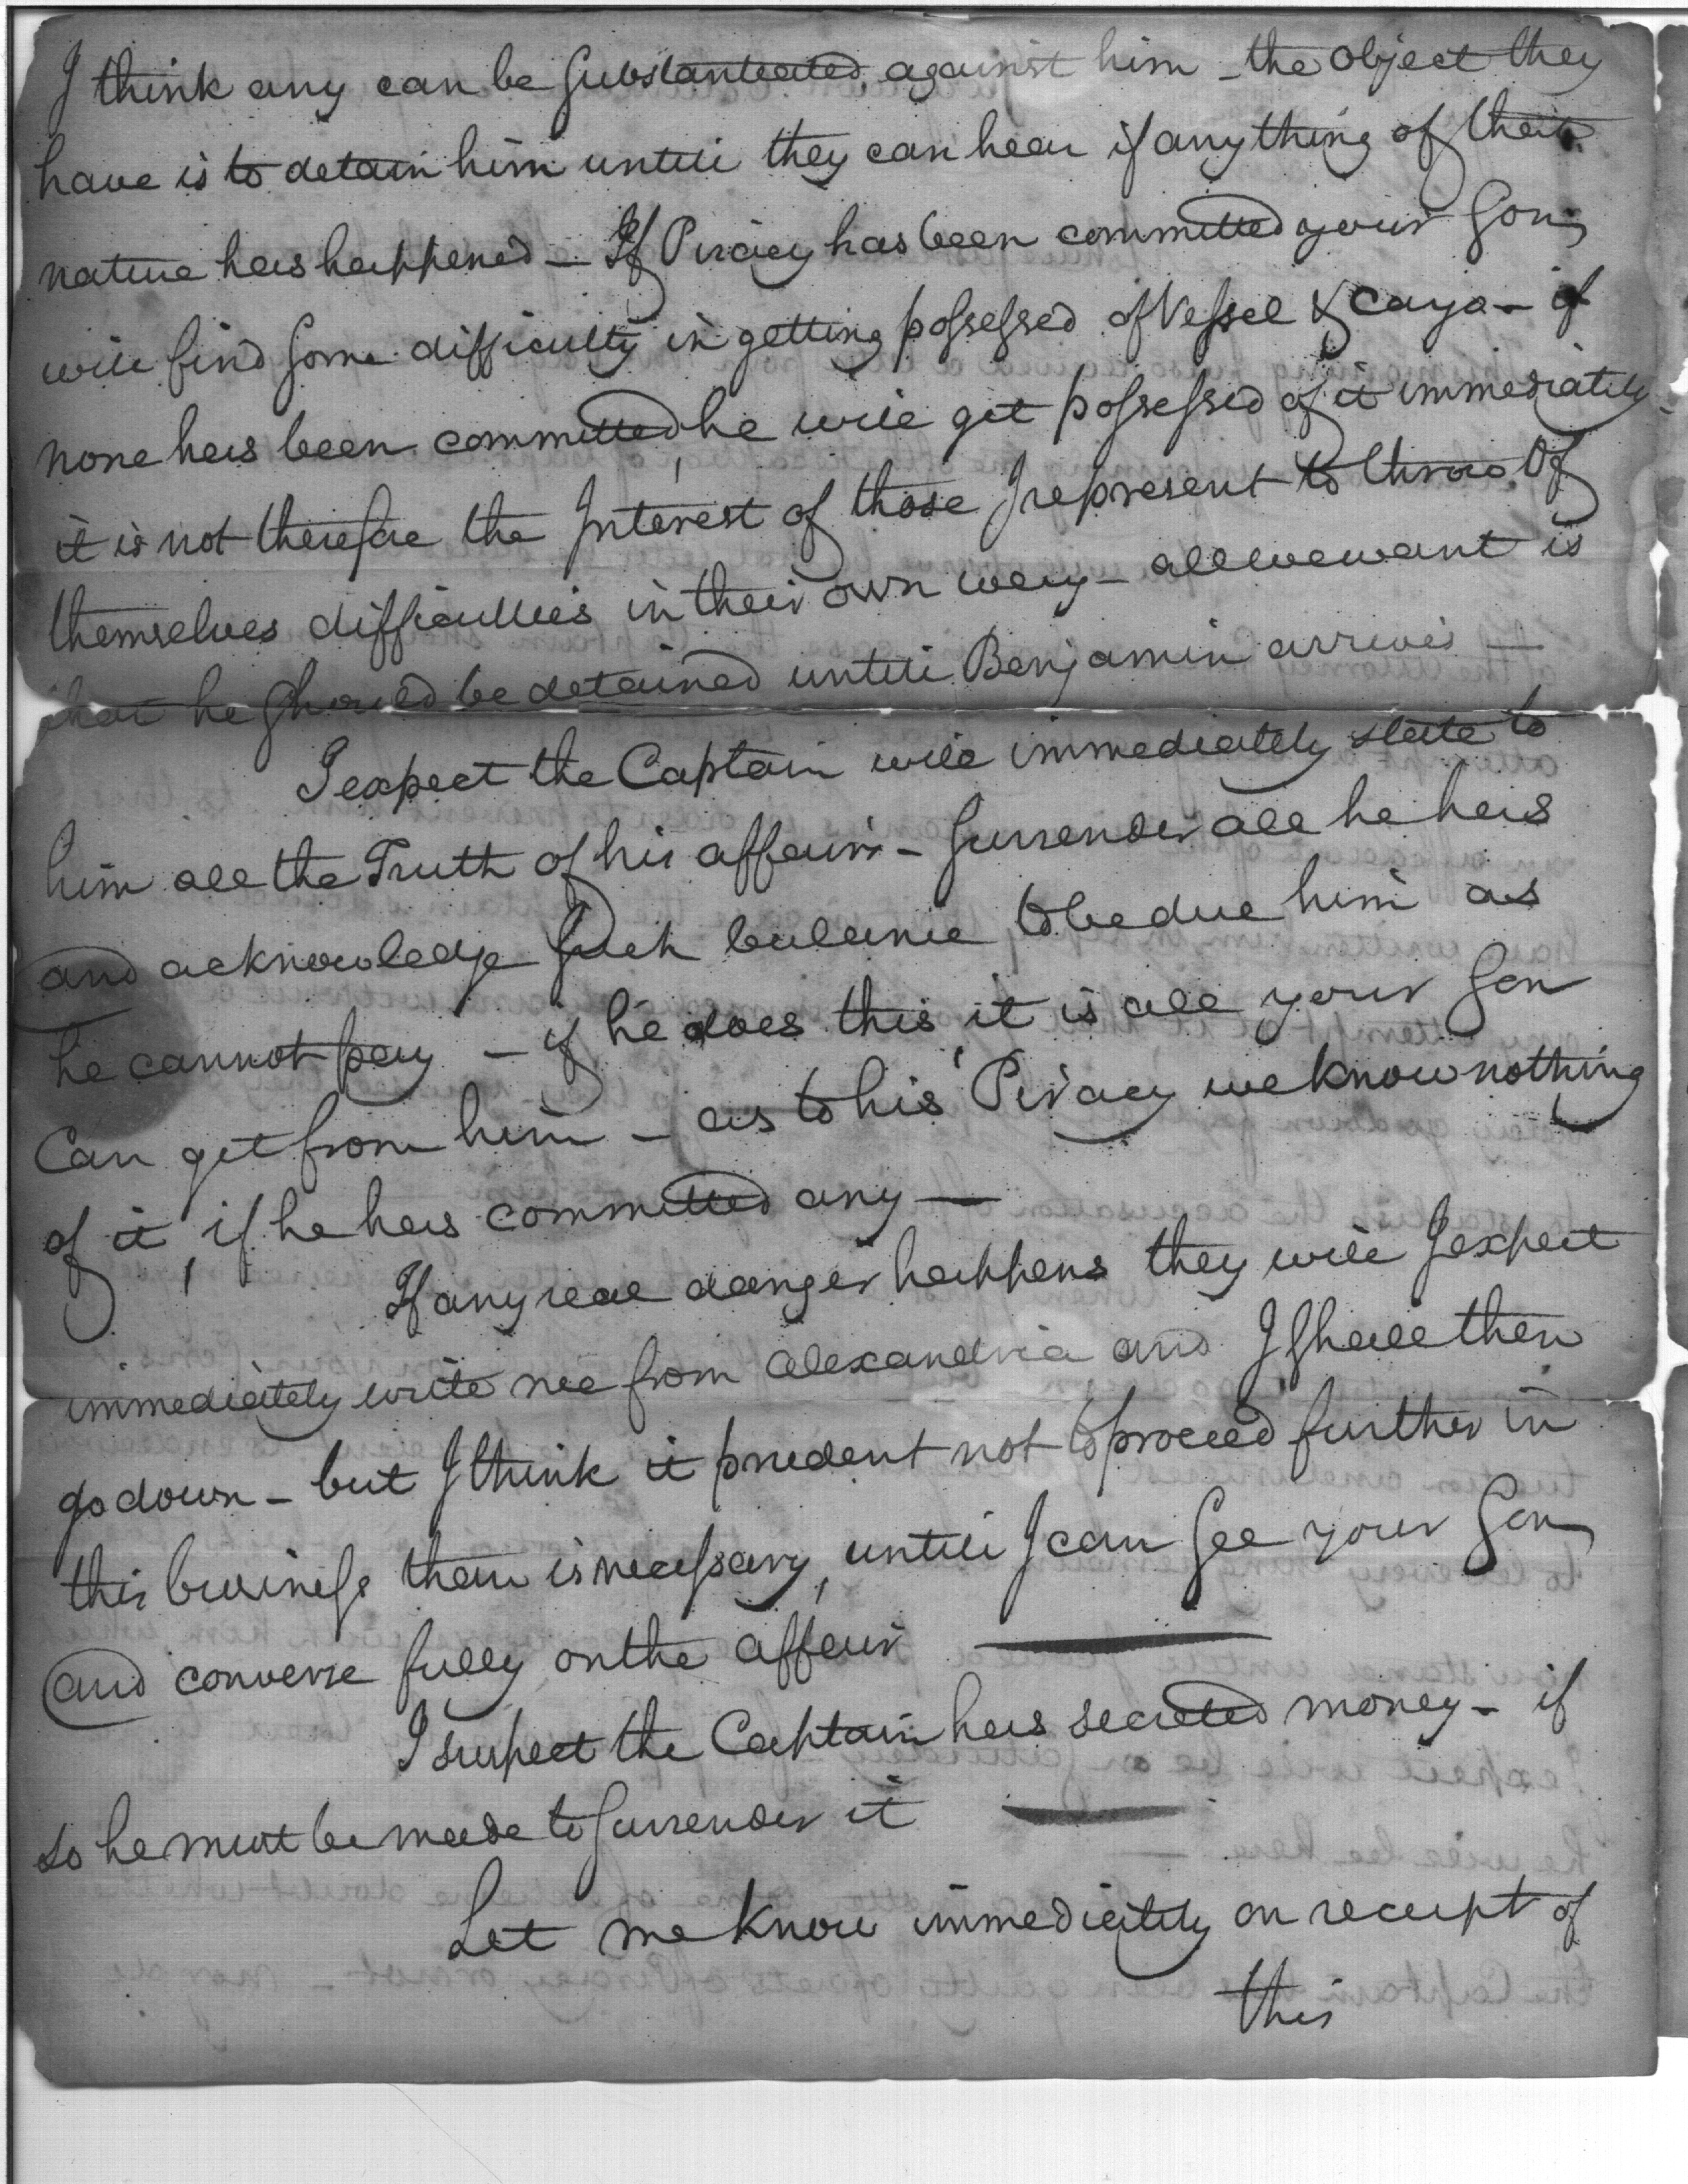 I think any can be Substanteated, against him - the Object they
have is to detain him untill they can hear if any thing of that
nature has happened - If Piracy has been committed your Son,
will find Some difficulty in getting possessed of Vessel & Cargo - if
none has been committed, he will get possessed of it immediately -
it is not therefore the Interest of those I represent to throw Of
themselves difficulties in their own way - all we want is
that he Should be detained untill Benjamin arrives -
I expect the Captain will immediately state to
him all the Truth of his affairs - Surrender all he has
and acknowledge Such balance to be due him as
he cannot pay - if he does this, it is all your Son
Can get from him - as to his Piracy we know nothing
of it, if he has committed any -
If any real danger happens they will I expect
immediately write me from Alexandria and I Shall then
go down - but I think it prudent not to proceed further in
this business than is necessary, untill I can See your Son,
and converse fully on the affair
I suspect the Captain has secreted money - if
so he must be made to Surrender it
Let me know immediately on receipt of
this